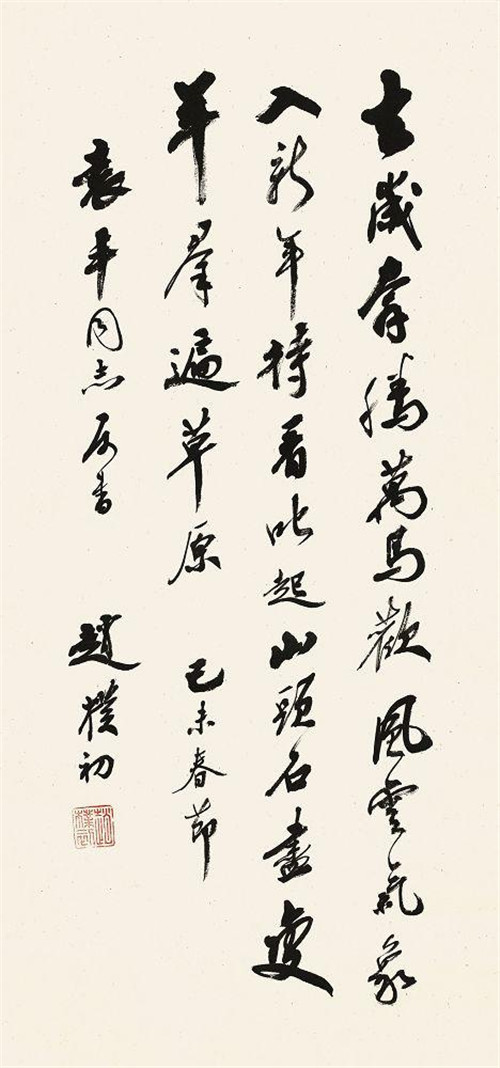 去歲奔騰萬馬歡風雲氣象
入新年待看叱起山頭石盡變
羊羣遍草原 己未春節
袁平同志属書 趙樸初
趙樸初